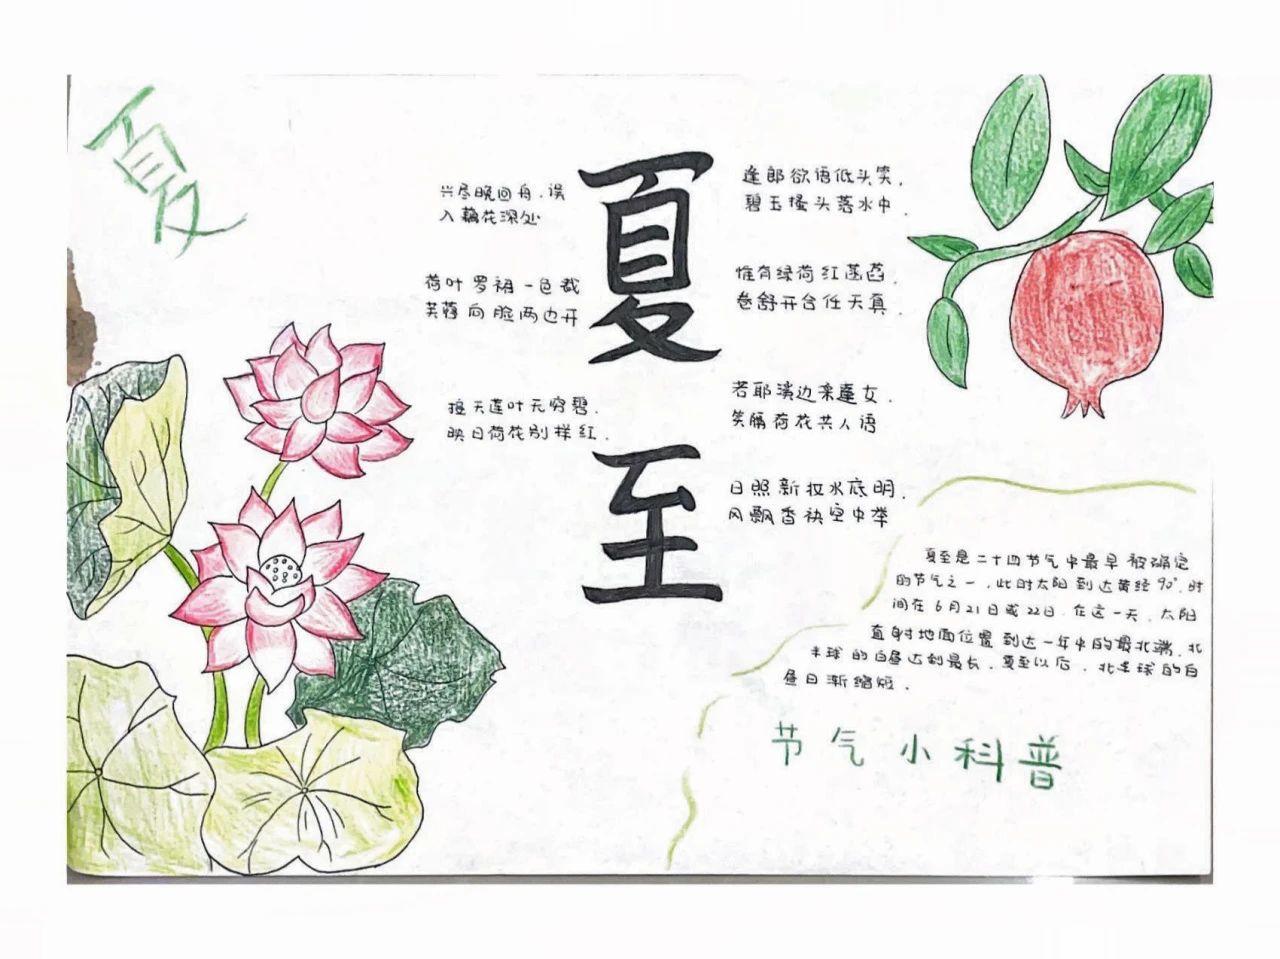 夏
兴尽晚回舟，误
入藕花深处
荷叶罗裙一色裁
芙蓉向脸两边开
接天莲叶无穷碧，
映日荷花别样红．
夏
至
逢郎欲语低头笑，
碧玉搔头落水中．
惟有绿荷红菡萏，
卷舒开合任天真．
若耶溪边采莲女，
笑隔荷花共人语
日照新妆水底明，
风飘香袂空中举
夏至是二十四节气中最早被确定
的节气之一，此时太阳到达黄经90°，时
间在6月21日或22日．在这一天，太阳
直射地面位置到达一年中的最北端，北
半球的白昼达到最长，夏至以后，北半球的白
昼日渐缩短．
节气小科普